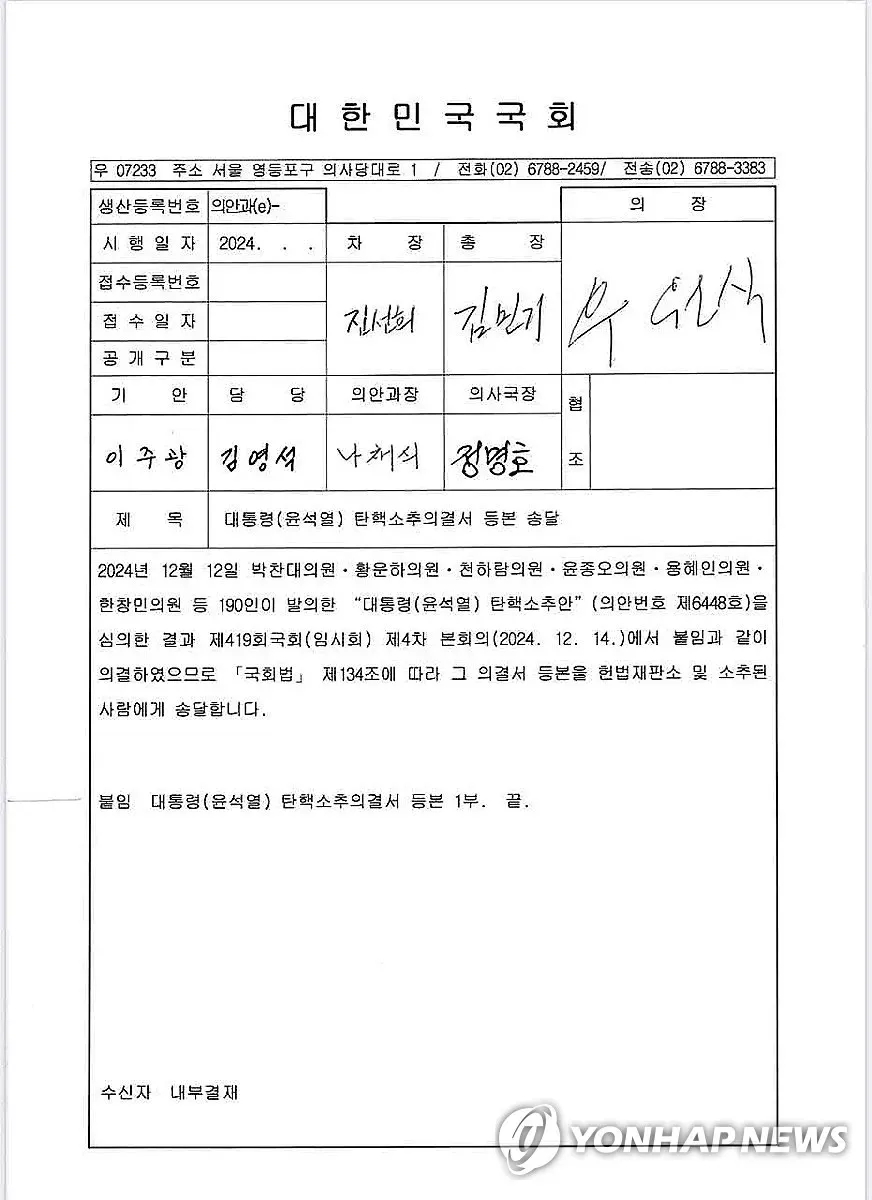 대한민국국회
우 07233 주소 서울 영등포구 의사당대로 1 / 전화(02) 6788-2459/ 전송(02) 6788-3383
생산등록번호 의안과(e)- 의 장
시행일자 2024. . . 차 장 총 장
접수등록번호
접수일자 진선희 김민기 우원식
공개구분
기 안 담 당 의안과장 의사국장 협조
이주광 김영석 나채식 정명호
제 목 대통령(윤석열) 탄핵소추의결서 등본 송달
2024년 12월 12일 박찬대의원·황운하의원·천하람의원·윤종오의원·용혜인의원·
한창민의원 등 190인이 발의한 “대통령(윤석열) 탄핵소추안”(의안번호 제6448호)을
심의한 결과 제419회국회(임시회) 제4차 본회의(2024. 12. 14.)에서 붙임과 같이
의결하였으므로 「국회법」 제134조에 따라 그 의결서 등본을 헌법재판소 및 소추된
사람에게 송달합니다.
붙임 대통령(윤석열) 탄핵소추의결서 등본 1부. 끝.
수신자 내부결재
YONHAP NEWS